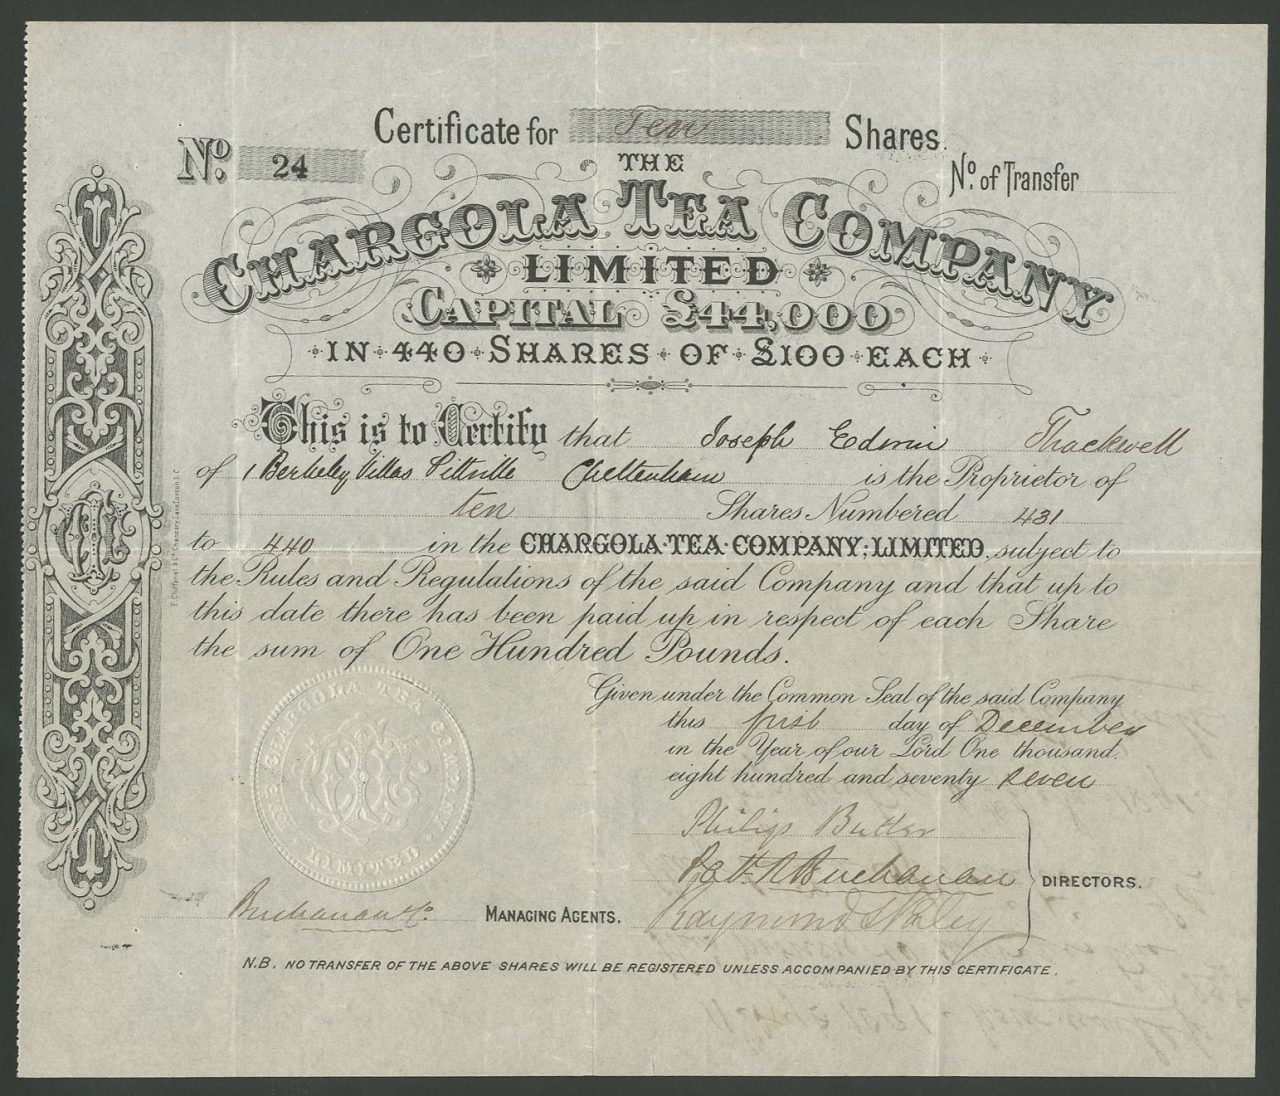 Certificate for Ten Shares.
No. 24
No. of Transfer
THE
CHARGOLA TEA COMPANY
LIMITED
CAPITAL £44,000
IN 440 SHARES OF £100 EACH
This is to Certify that Joseph Edwin Thackwell
of 1 Berkeley Villas Pittville Cheltenham is the Proprietor of
ten Shares Numbered 431
to 440 in the CHARGOLA·TEA·COMPANY; LIMITED, subject to
the Rules and Regulations of the said Company and that up to
this date there has been paid up in respect of each Share
the sum of One Hundred Pounds.
Given under the Common Seal of the said Company
this first day of December
in the Year of our Lord One thousand
eight hundred and seventy seven
THE CHARGOLA TEA COMPANY
LIMITED
Philip Butler
Buchanan
Raymond
DIRECTORS.
Buchanan & Co. MANAGING AGENTS.
N.B. NO TRANSFER OF THE ABOVE SHARES WILL BE REGISTERED UNLESS ACCOMPANIED BY THIS CERTIFICATE.